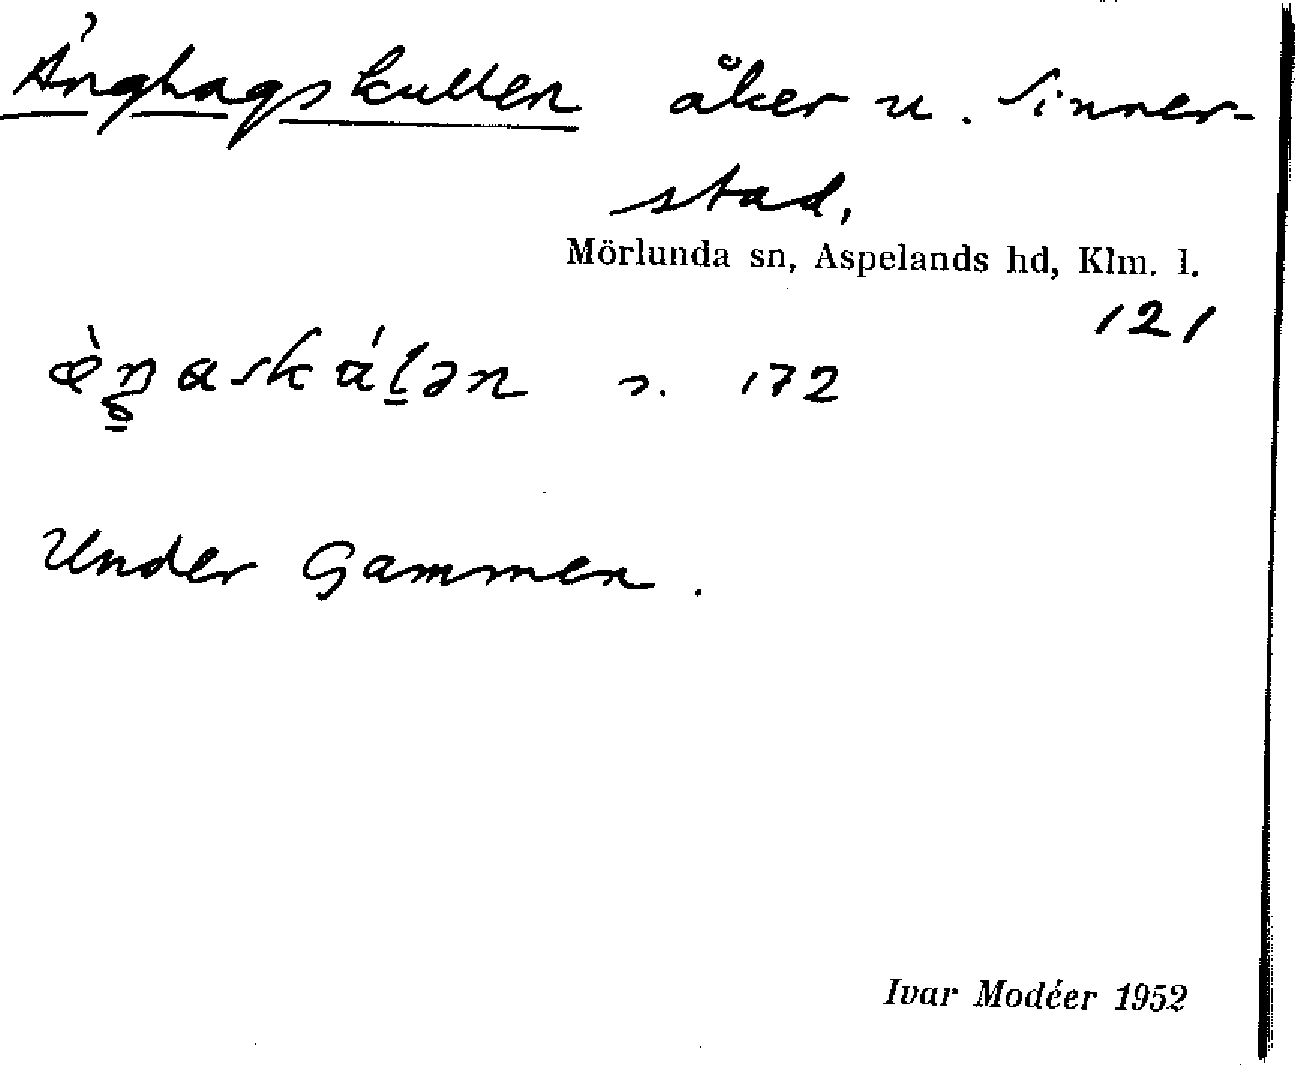 Änghagskullen åker u. Sinner-
stad,
Mörlunda sn, Aspelands hd, Klm. l.
121
s. 172
Under Gammen.
Ivar Modéer 1952